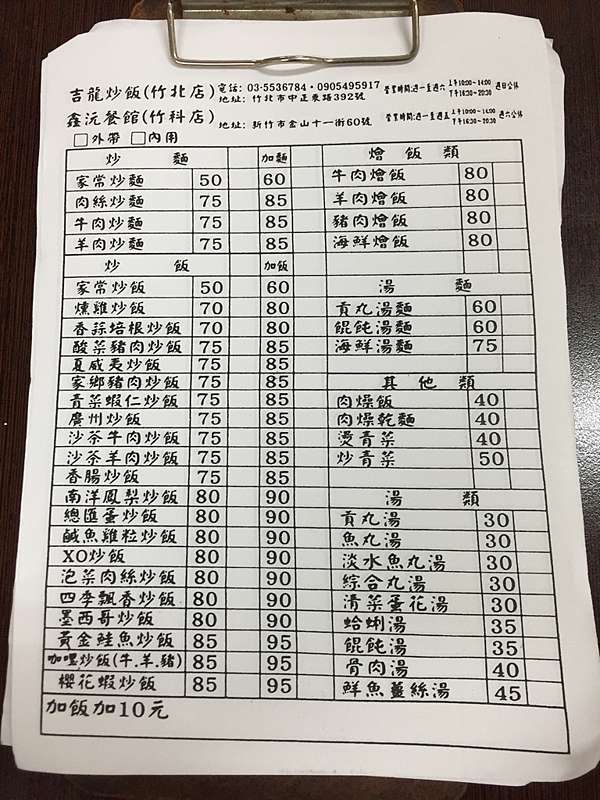 吉龍炒飯(竹北店) 電話: 03-5536784・0905495917
地址: 竹北市中正東路392號 營業時間:週一至週六 上午10:00~14:00 下午16:30~20:30 週日公休
鑫沅餐館(竹科店) 地址: 新竹市金山十一街60號 營業時間:週一至週五 上午10:00~14:00 下午16:30~20:30 週六公休
□外帶 □內用
炒 麵 加麵
家常炒麵 50 60
肉絲炒麵 75 85
牛肉炒麵 75 85
羊肉炒麵 75 85
炒 飯 加飯
家常炒飯 50 60
燻雞炒飯 70 80
香蒜培根炒飯 70 80
酸菜豬肉炒飯 75 85
夏威夷炒飯 75 85
家鄉豬肉炒飯 75 85
青菜蝦仁炒飯 75 85
廣州炒飯 75 85
沙茶牛肉炒飯 75 85
沙茶羊肉炒飯 75 85
香腸炒飯 75 85
南洋鳳梨炒飯 80 90
總匯蛋炒飯 80 90
鹹魚雞粒炒飯 80 90
XO炒飯 80 90
泡菜肉絲炒飯 80 90
四季飄香炒飯 80 90
墨西哥炒飯 80 90
黃金鮭魚炒飯 85 95
咖哩炒飯(牛.羊.豬) 85 95
櫻花蝦炒飯 85 95
加飯加10元
燴 飯 類
牛肉燴飯 80
羊肉燴飯 80
豬肉燴飯 80
海鮮燴飯 80
湯 麵
貢丸湯麵 60
餛飩湯麵 60
海鮮湯麵 75
其 他 類
肉燥飯 40
肉燥乾麵 40
燙青菜 40
炒青菜 50
湯 類
貢丸湯 30
魚丸湯 30
淡水魚丸湯 30
綜合丸湯 30
清菜蛋花湯 30
蛤蜊湯 35
餛飩湯 35
骨肉湯 40
鮮魚薑絲湯 45